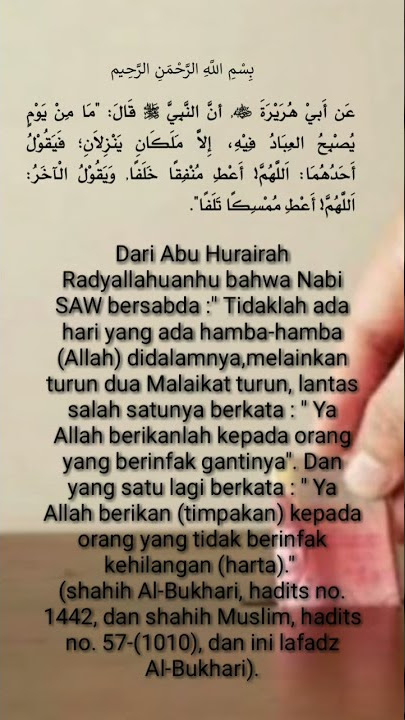 بِسْمِ اللَّهِ الرَّحْمَنِ الرَّحِيم
عَن أَبِيْ هُرَيْرَةَ ﷺ، أنَّ النَّبيَّ ﷺ قَالَ: "مَا مِنْ يَوْمٍ
يُصْبِحُ العِبَادُ فِيْهِ، إِلاَّ مَلَكَانِ يَنْزِلَانِ؛ فَيَقُوْلُ
أَحَدُهُمَا: اَللَّهُمَّ! أَعْطِ مُنْفِقًا خَلَفًا. وَيَقُوْلُ الْآخَرُ:
اَللَّهُمَّ! أَعْطِ مُمْسِكًا تَلَفًا".
Dari Abu Hurairah
Radyallahuanhu bahwa Nabi
SAW bersabda :" Tidaklah ada
hari yang ada hamba-hamba
(Allah) didalamnya,melainkan
turun dua Malaikat turun, lantas
salah satunya berkata : " Ya
Allah berikanlah kepada orang
yang berinfak gantinya". Dan
yang satu lagi berkata : " Ya
Allah berikan (timpakan) kepada
orang yang tidak berinfak
kehilangan (harta)."
(shahih Al-Bukhari, hadits no.
1442, dan shahih Muslim, hadits
no. 57-(1010), dan ini lafadz
Al-Bukhari).